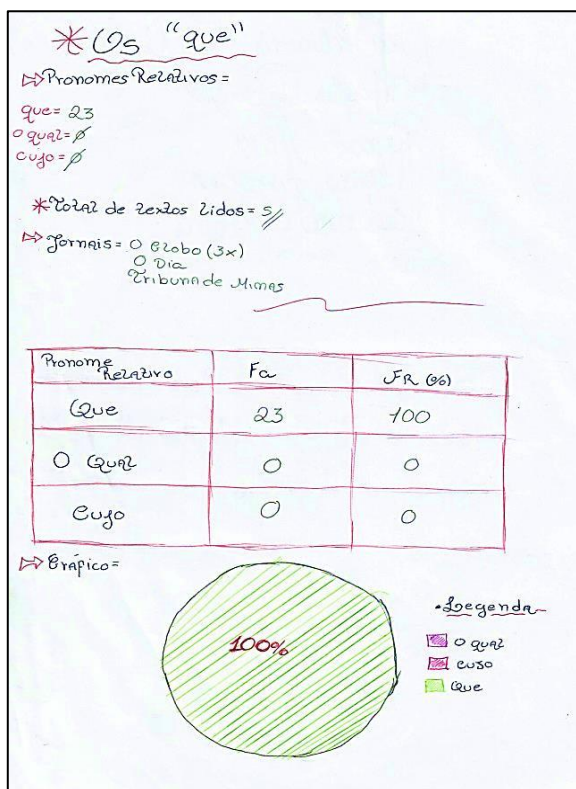 * Os "que"
⇨ Pronomes Relativos =
que = 23
o qual = ∅
cujo = ∅
* Total de textos lidos = 5//
⇨ Jornais = O Globo (3x)
O Dia
Tribuna de Minas
Pronome Relativo Fa FR (%)
Que 23 100
O Qual 0 0
Cujo 0 0
⇨ Gráfico =
100%
• Legenda
o qual
cujo
Que